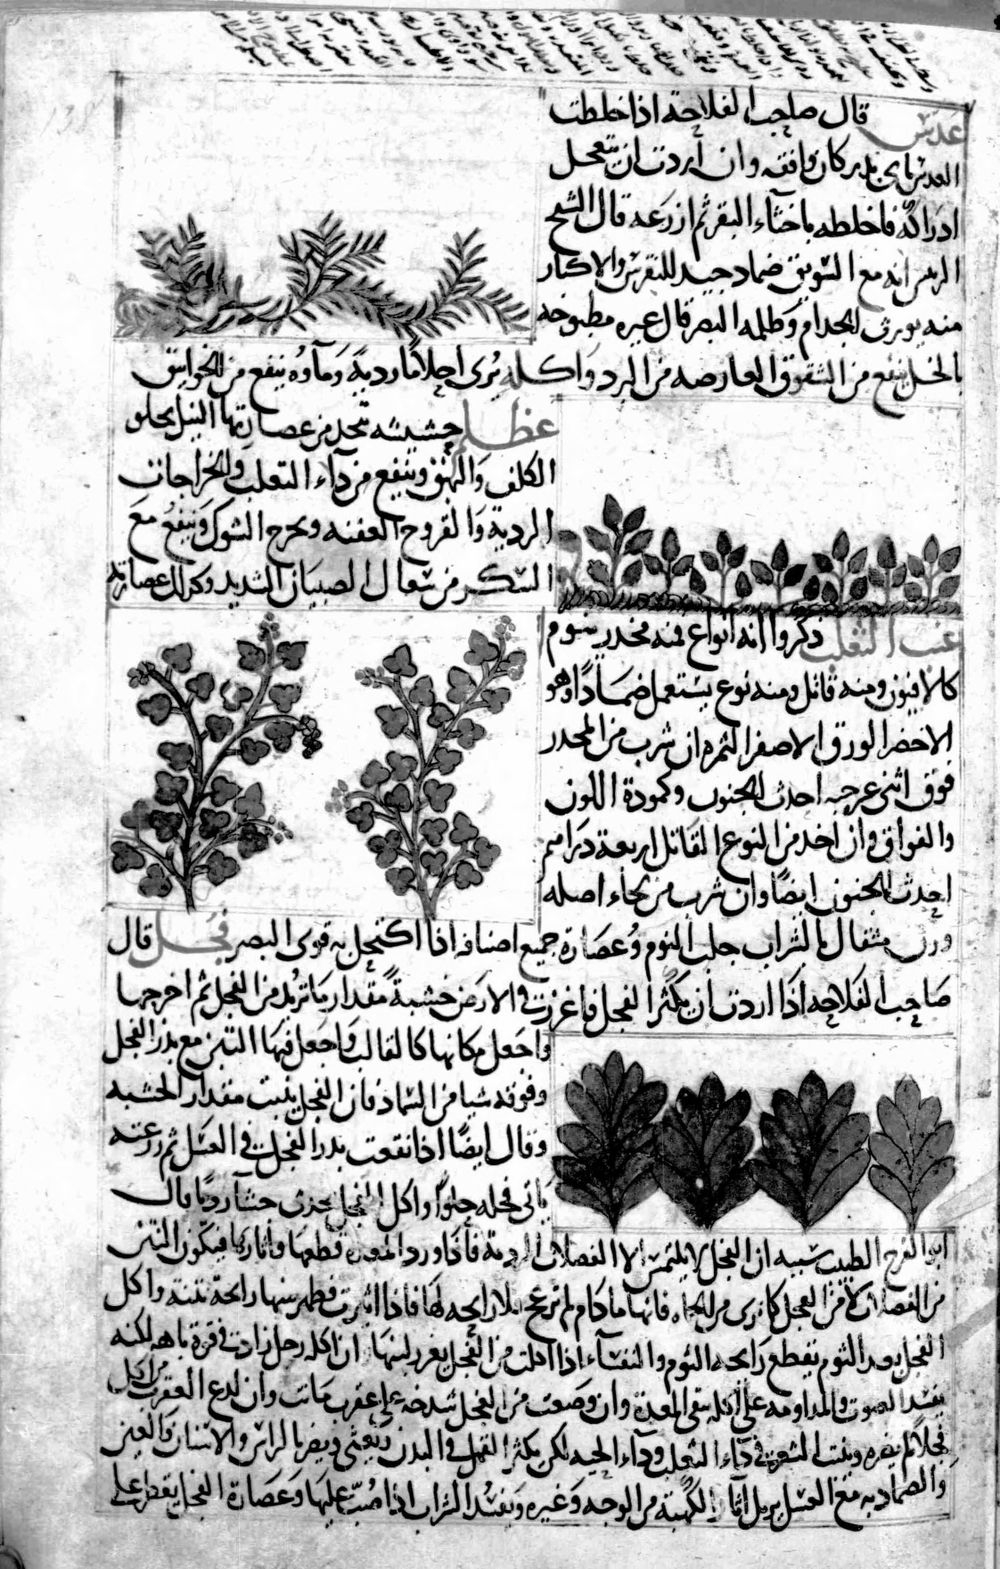 عدس قال صاحب الفلاحة اذا خلطت
العدس باى بذر كان وافقه وان اردت ان تعجل
ادراكه فاخلطه باخثاء البقر ثم ازرعه قال الشيخ
الرىس انه مع السويق ضماد جيد للنقرس والاكثار
منه يورث الجذام وظلمة البصر قال غيره مطبوخه
بالخل ينفع من الشقوق العارضه من البرد واكله يرى احلاما رديه وماوه ينفع من الخوانيق
عظلم حشيشه تتخذ من عصارتها النيل يجلو
الكلف والبهق وينفع من دآء الثعلب والخراجات
الردية والقروح العفنه ويخرج الشوك وينفع مع
السكر من سعال الصبيان الشديد وكذلك عصارته
عنب الثعلب ذكروا انه انواع فمنه مخدر ينوم
كالافيون ومنه قاتل ومنه نوع يستعمل ضمادًا وهو
الاخضر الورق الاصفر الثمره ان شرب من المخدر
فوق اثنى عشر حبه احدث الجنون وكمودة اللون
والفواق وان اخذ من النوع القاتل اربعة دراهم
احدث الجنون ايضًا وان شرب من لحاء اصله
وزن مثقال بالشراب جلب النوم وعصارة جميع اصنافه اذا اكتحل به قوى البصر فجل قال
صاحب الفلاحه اذا اردت ان يكثر الفجل فاغرز في الارض خشبةً مقدار ما تريد من الفجل ثم اخرجها
واجعل مكانها كالقالب واجعل فيها التبن مع بذر الفجل
وفوقه شيا من السماد فان الفجل ينبت مقدار الخشبه
وقال ايضًا اذا نقعت بذر الفجل في العسل ثم زرعته
ياتى فجله حلوًا واكل الفجل يحدث جشآ رديا قال
ابو الفرج الطبيب سببه ان الفجل لا يلتمس الا الفضلات الردية فاذا ورد المعدة قطعها واثارها فيكون النتن
من الفضلات لا من الفجل كما نرى من الحماه فانها ما دام لم تزعج فلا رايحه لها فاذا اثيرت فظهر منها رايحة نتنة واكل
الفجل بعد الثوم يقطع رايحه الثوم والنفسآء اذا اكلت من الفجل يغزر لبنها وان اكله رجل زادت في قوة باهه لكنه
يفسد الصوت والمداومه على اكله ينقى المعدة وان وضعت من الفجل شدخه على عقرب ماتت وان لدغ العقرب من اكل
فجلا لم يضره وينبت الشعر في دآء الثعلب ودآء الحيه لكن يكثر القمل في البدن ويغثى ويضر بالراس والاسنان والعين
والضماد به مع العسل يزيل اثار الكهبة من الوجه وغيره ويفسد الشراب اذا صب عليها وعصارة الفجل يقطر على